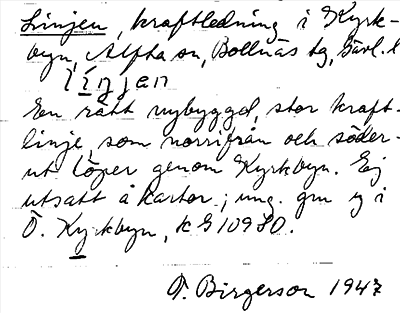 Linjen, kraftledning i Kyrk-
byn, Alfta sn, Bollnäs tg, Gävl. l
līṉjen
En rätt nybyggd, stor kraft-
linje, som norrifrån och söder-
ut löper genom Kyrkbyn. Ej
utsatt å kartor; ung. gm y i
Ö. Kyrkbyn, k G 109 SO.
T. Birgerson 1947